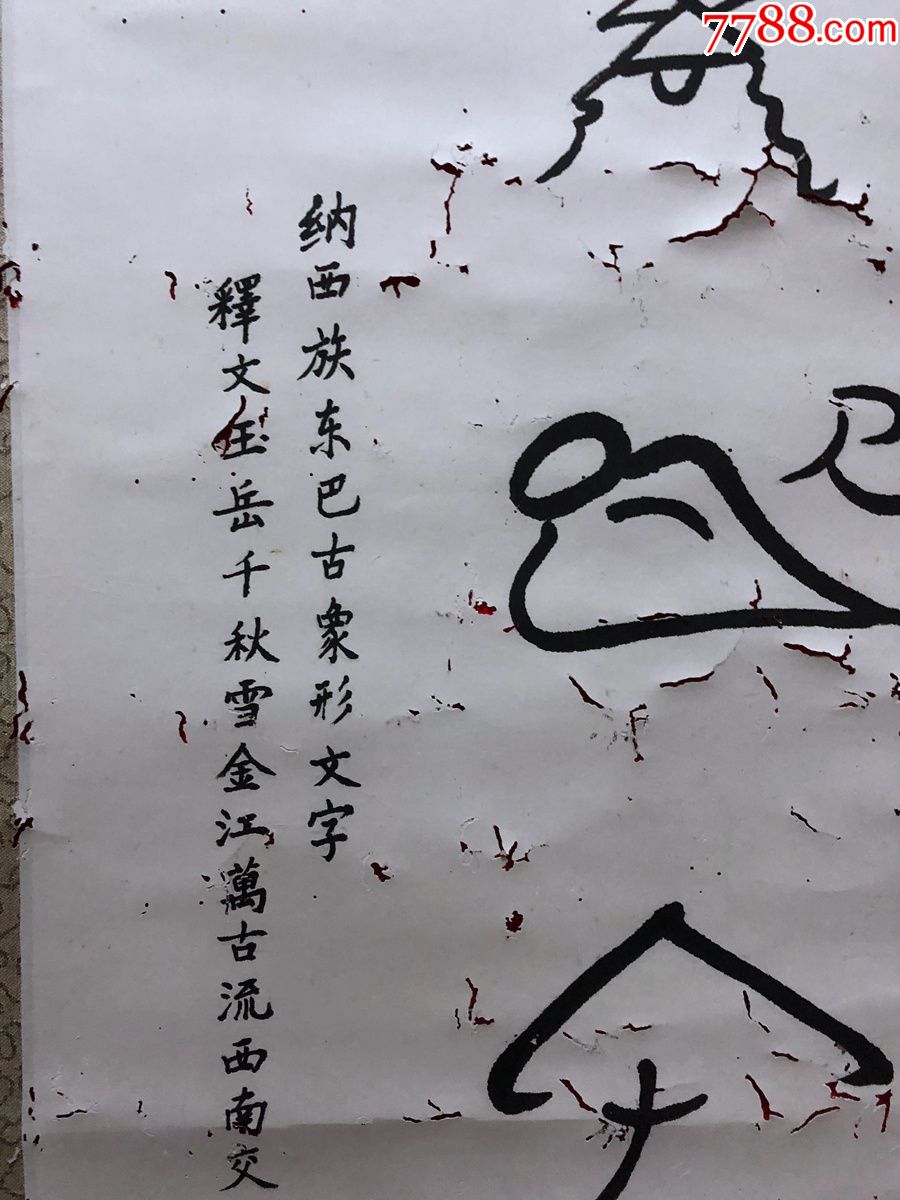 7788.com
纳西族东巴古象形文字
釋文玉岳千秋雪金江萬古流西南交